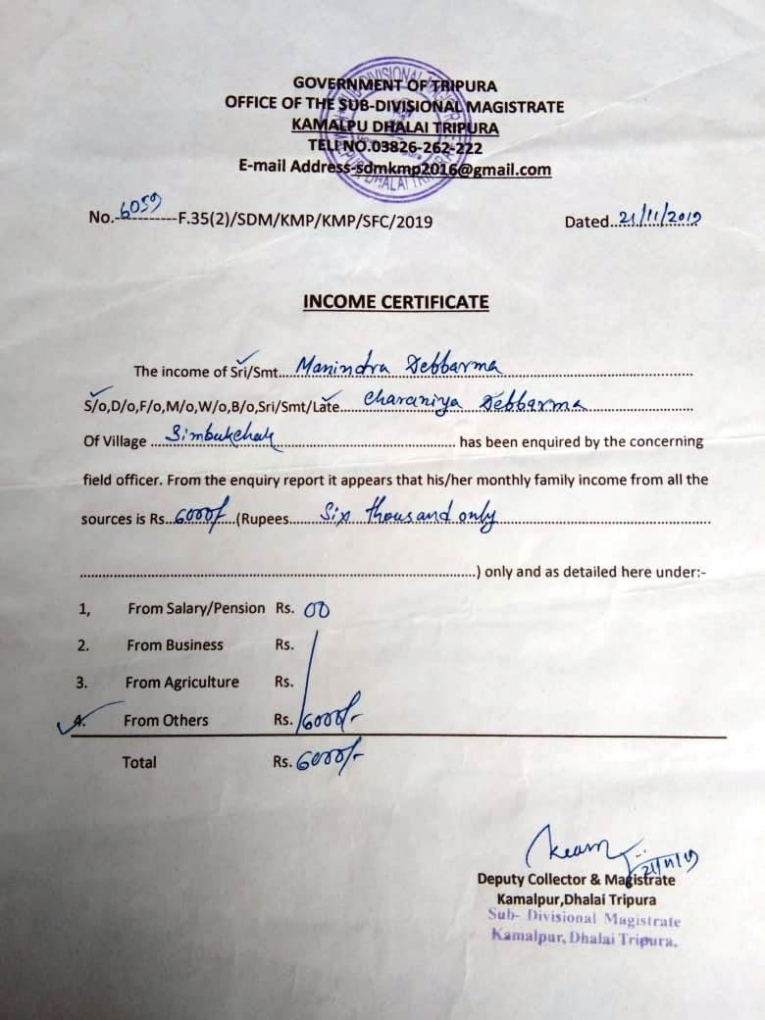 GOVERNMENT OF TRIPURA
OFFICE OF THE SUB-DIVISIONAL MAGISTRATE
KAMALPU DHALAI TRIPURA
TELI NO.03826-262-222
E-mail Address-sdmkmp2016@gmail.com
No.-6059--------F.35(2)/SDM/KMP/KMP/SFC/2019 Dated..21/11/2019
INCOME CERTIFICATE
The income of Sri/Smt... Manindra Debbarma
S/o,D/o,F/o,M/o,W/o,B/o,Sri/Smt/Late.... Charaniya Debbarma
Of Village ... Simbukchak ... has been enquired by the concerning
field officer. From the enquiry report it appears that his/her monthly family income from all the
sources is Rs..6000/- (Rupees....... Six thousand only
.......) only and as detailed here under:-
1, From Salary/Pension Rs. 00
2. From Business Rs.
3. From Agriculture Rs.
4. From Others Rs. 6000/-
Total Rs. 6000/-
21/11/19
Deputy Collector & Magistrate
Kamalpur,Dhalai Tripura
Sub- Divisional Magistrate
Kamalpur, Dhalai Tripura.